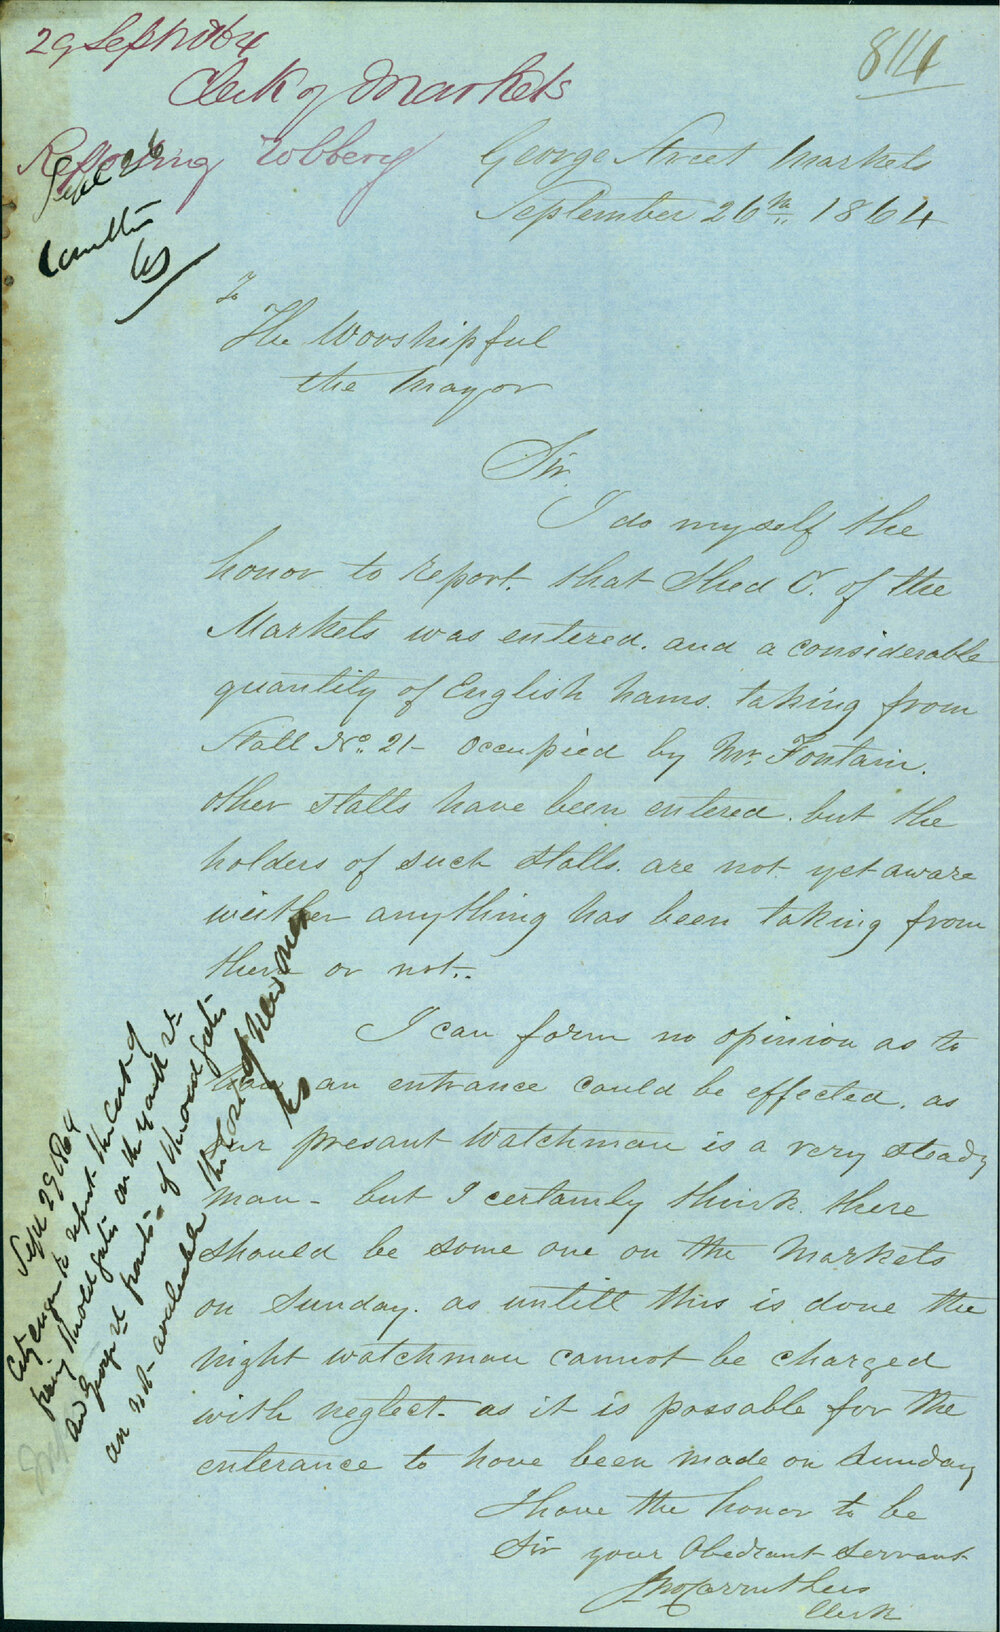 29 Sept 1864
814
Clerk of Markets
Reporting robbery
Sept 26
George Street Markets
September 26th 1864
To
The Worshipful
the Mayor
Sir.
I do myself the
honor to report. that Shed C. of the
Markets was entered. and a considerable
quantity of English hams. taking from
Stall No. 21- occupied by Mr. Fontain.
other stalls have been entered. but the
holders of such stalls. are not yet aware
weither anything has been taking from
them or not..
I can form no opinion as to
how an entrance could be effected. as
our presant Watchman is a very steady
man - but I certainly think. there
should be some one on the Markets
on Sunday. as untill this is done the
night watchman cannot be charged
with neglect. as it is possable for the
enterance to have been made on Sunday
I have the honor to be
Sir your Obediant Servant
Jno Carruthers
Clerk
Sept 29 1864
City Engr to report the Cost of
fixing the old gates on the York St
and George St fronts - if the old gates
are not available the Cost of New ones